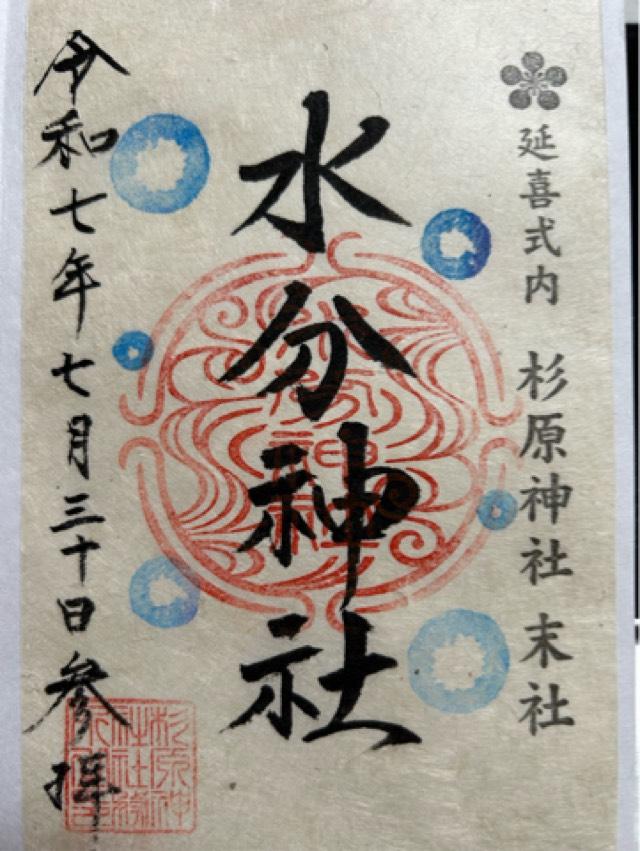 延喜式内 杉原神社 末社
水分神社
令和七年七月三十日参拝